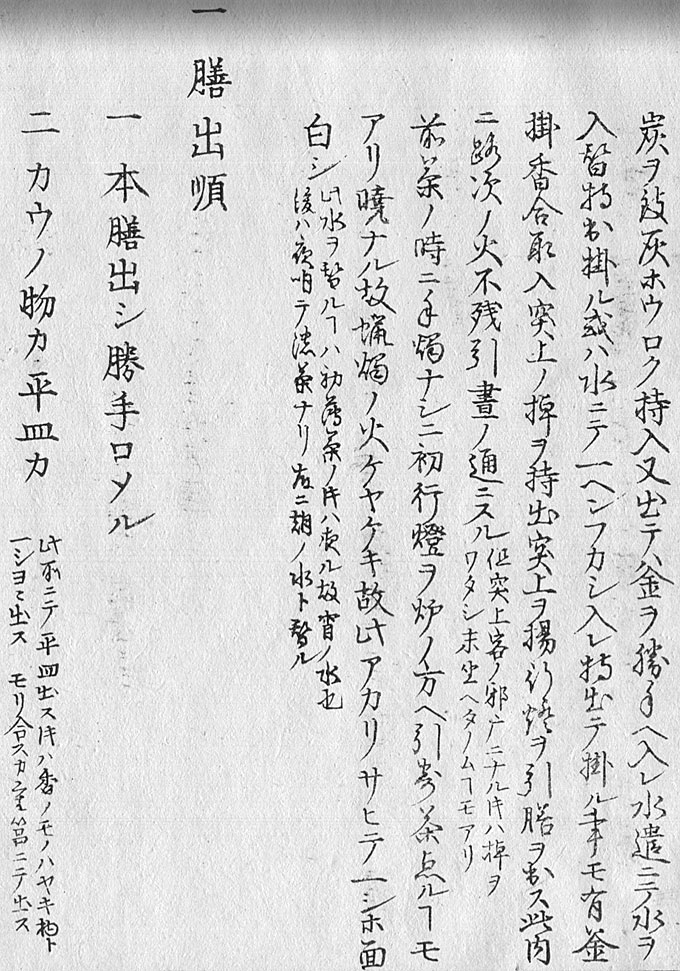 炭ヲ改灰ホウロク持入又出テハ釜ヲ勝手ヘ入レ水遣ニテ水ヲ
入替持出掛ル或ハ水ニテ一ヘンフカシ入レ持出テ掛ル事モ有釜
掛香合取入突上ノ棹ヲ持出突上ヲ揚行燈ヲ引膳ヲ出ス此内
ニ路次ノ火不残引昼ノ通ニスル 但突上客ノ邪广ニナル片ハ棹ヲ
ワタシ末坐ヘタノムヿモアリ
前茶ノ時ニ手燭ナシニ初行燈ヲ炉ノ方ヘ引寄茶点ルヿモ
アリ暁ナル故蝋燭ノ火ケヤケキ故此アカリサヒテ一シホ面
白シ 此水ヲ替ルヿハ初薄茶ノ片ハ夜ル故宵ノ水也
後ハ夜明テ濃茶ナリ故ニ朝ノ水ト替ル
一 膳出順
一 本膳出シ勝手口〆ル
二 カウノ物カ平皿カ 此所ニテ平皿出ス片ハ香ノモノハヤキ物ト
一シヨニ出ス モリ合スカ重筥ニテ出ス